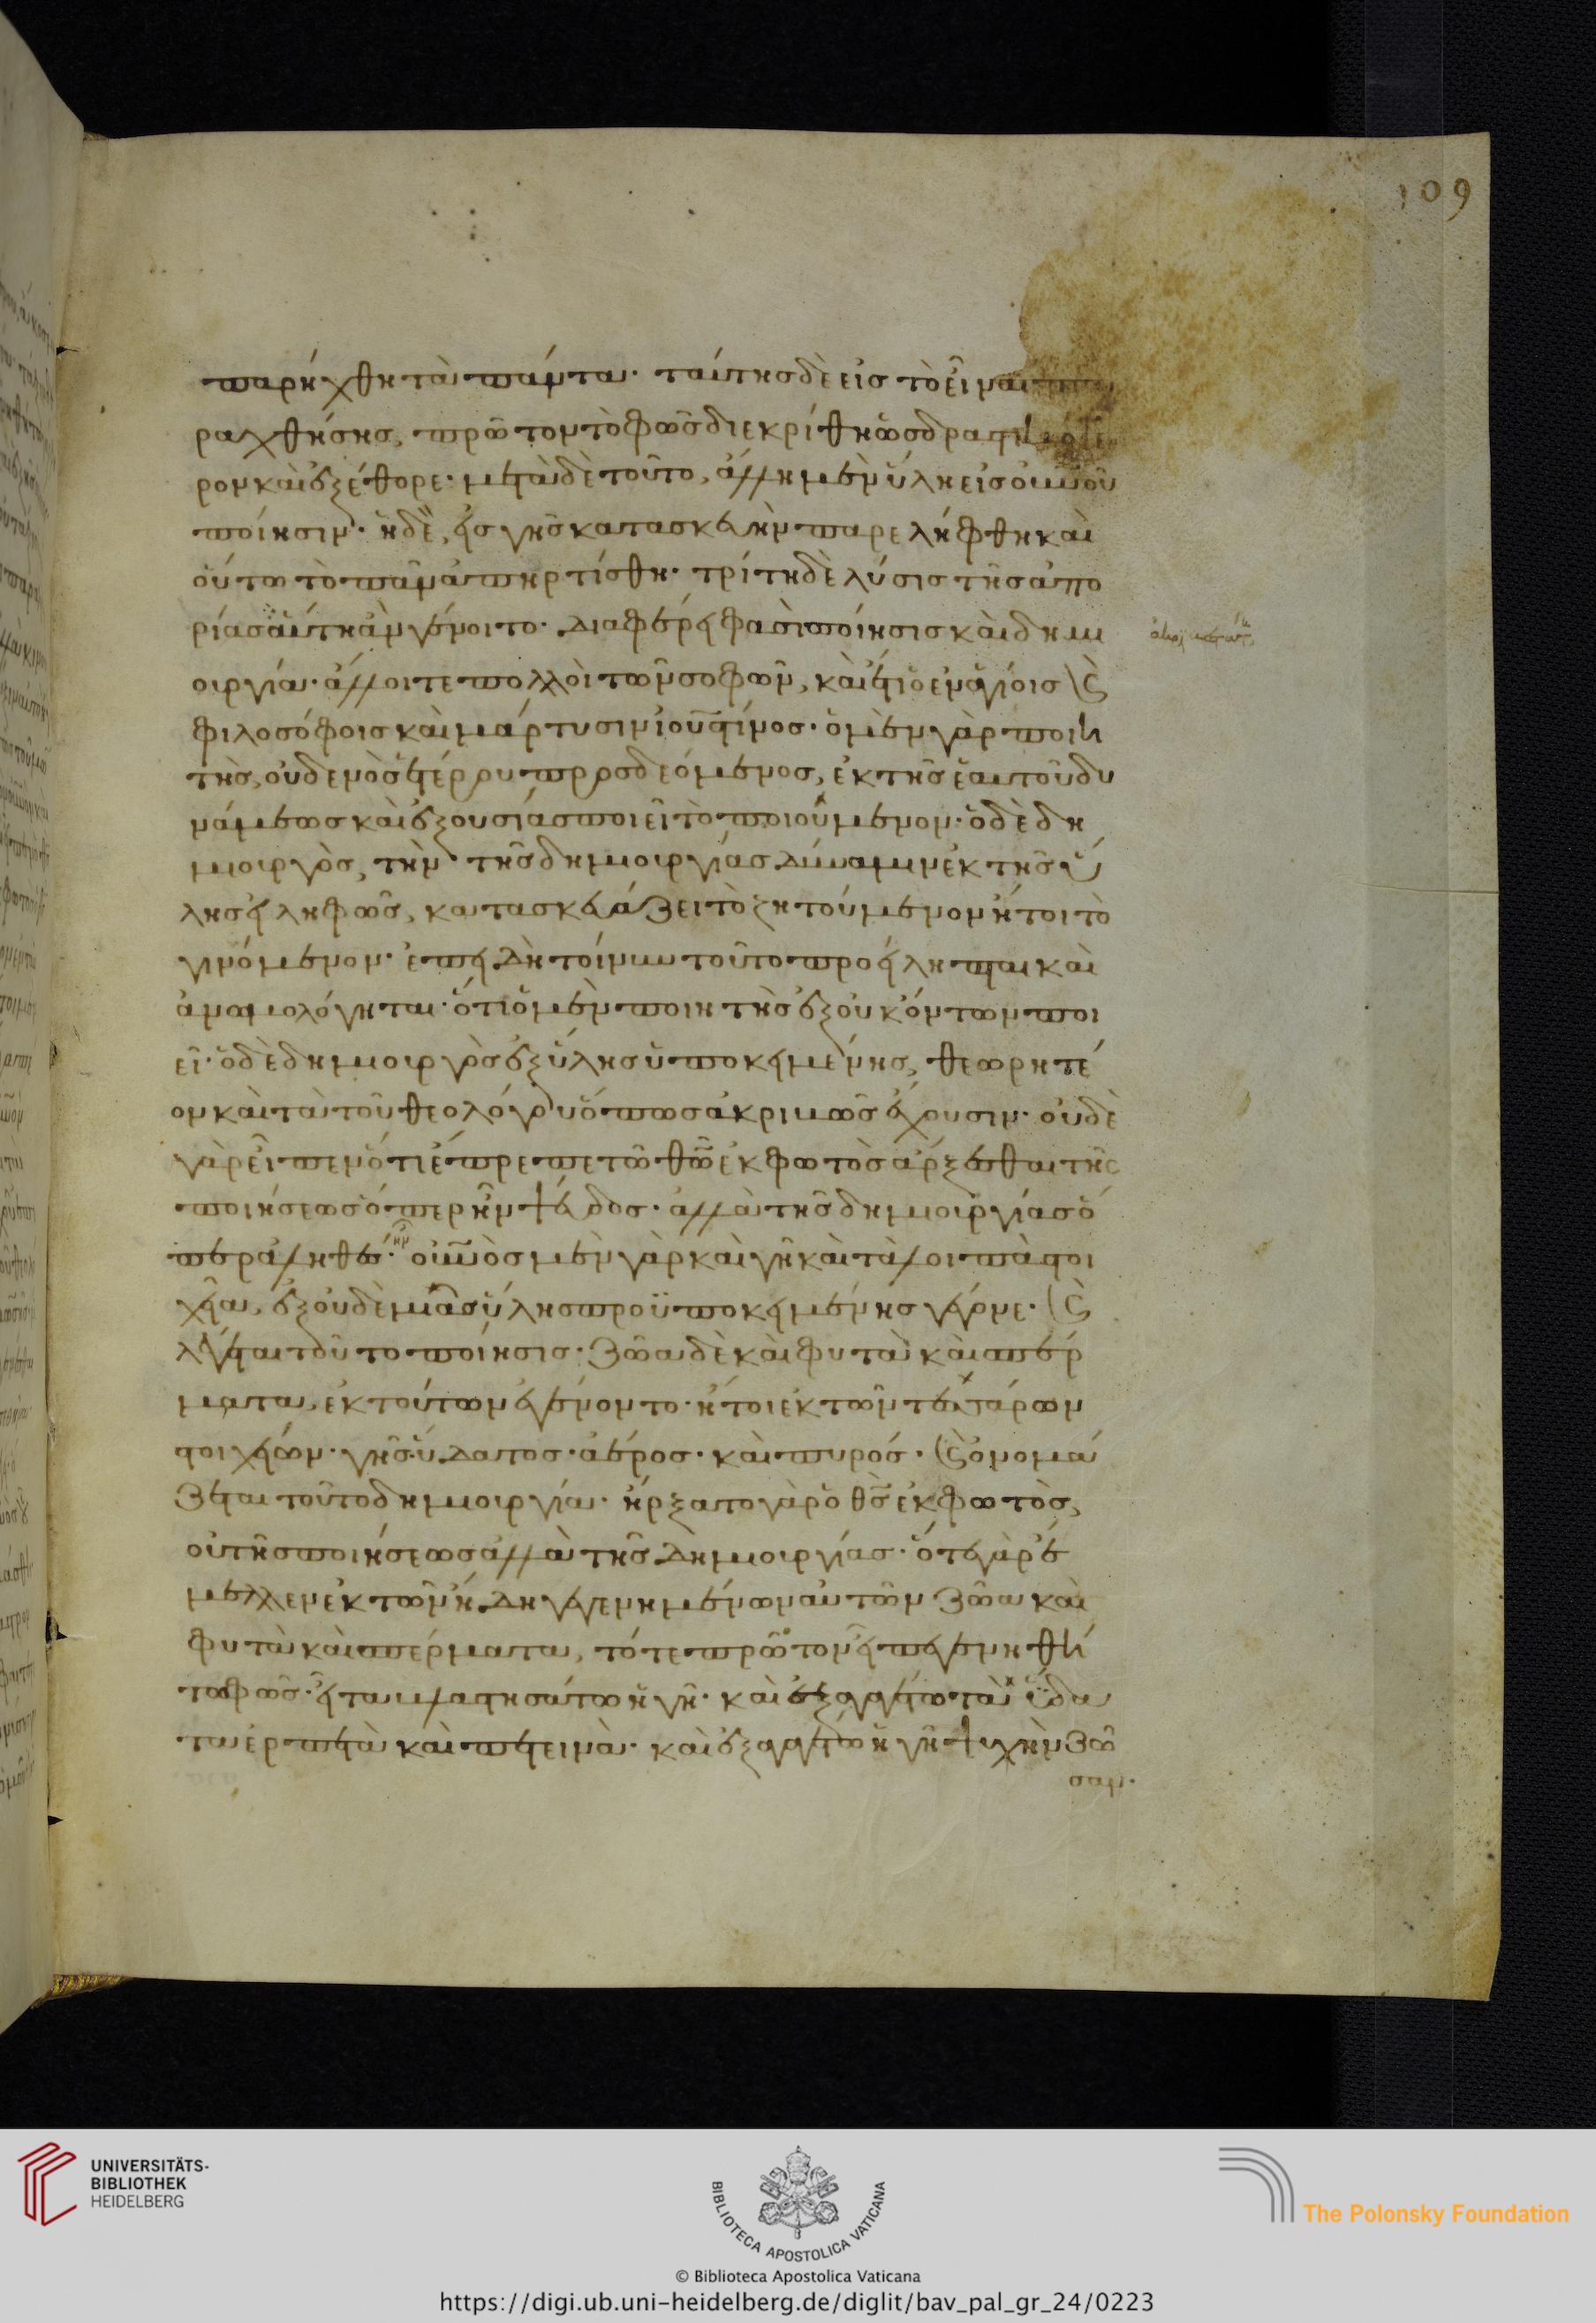 109
παρήχθη τὰ πάντα· ταύτης δὲ εἰς τὸ εἶναι
ραχθήσης, πρῶτον τὸ φῶς διεκρίθη ὡς δραστικώτε
ρον καὶ ἐξέθορε· μετὰ δὲ τοῦτο, ἄλλη μὲν ὕλη εἰς οὐνοῦ
ποίησιν· ἡ δὲ, εἰς γῆς κατασκευὴν παρελήφθη καὶ
οὕτω τὸ πᾶν ἀπηρτίσθη· τρίτη δὲ λύσις τῆς ἀπο
ρίας αὕτη ἂν γένοιτο· διαφέρει φασὶ ποίησις καὶ δημι
ουργία· ἄλλοι τε πολλοὶ τῶν σοφῶν, καὶ ἔτι ὁ ἐν ἁγίοις καὶ
φιλοσόφοις καὶ μάρτυσιν ἰουστίνος· ὁ μὲν γὰρ ποιη
τὴς, οὐδενὸς ἑτέρου προσδεόμενος, ἐκ τῆς ἑαυτοῦ δυ
νάμεως καὶ ἐξουσίας ποιεῖ τὸ ποιούμενον· ὁ δὲ δη
μιουργὸς, τὴν τῆς δημιουργίας δύναμιν ἐκ τῆς ὕ
λης εἰληφὼς, κατασκευάζει τὸ ζητούμενον ἤτοι τὸ
γινόμενον· ἐπειδὴ τοίνυν τοῦτο προείληπται καὶ
ἀνωμολόγηται· ὅτι ὁ μὲν ποιητὴς ἐξ οὐκ ὄντων ποι
εῖ· ὁ δὲ δημιουργὸς ἐξ ὕλης ὑποκειμένης, θεωρητέ
ον καὶ τὰ τοῦ θεολόγου ὅπως ἀκριβῶς ἔχουσιν· οὐδὲ
γὰρ εἶπεν ὅτι ἔπρεπε τῶ θῶ ἐκ φωτὸς ἄρξασθαι τῆς
ποιήσεως ὅπερ ἦν ψεῦδος· ἀλλὰ τῆς δημιουργίας ὅ
περ ἀληθὲς ἦν· οὐνὸς μὲν γὰρ καὶ γῆ καὶ τὰ λοιπὰ στοι
χεῖα, ἐξ οὐδεμιᾶς ὕλης προϋποκειμένης γέγονε· καὶ
λέγεται τοῦτο ποίησις· ζῶα δὲ καὶ φυτὰ καὶ σπέρ
ματα, ἐκ τούτων ἐγένοντο· ἤτοι ἐκ τῶν τεττάρων
στοιχείων· γῆς· ὕδατος· ἀέρος· καὶ πυρός· καὶ ὀνομά
ζεται τοῦτο δημιουργία· ἤρξατο γὰρ ὁ θς ἐκ φωτὸς,
οὐ τῆς ποιήσεως ἀλλὰ τῆς δημιουργίας· ὅτε γὰρ ἔ
μελλεν ἐκ τῶν ἤδη γεγενημένων αὐτῶν ζῶα καὶ
φυτὰ καὶ σπέρματα, τότε πρῶτον εἶπε γενηθή
τω φῶς· εἶτα βλαστησάτω ἡ γῆ· καὶ ἐξαγαγέτω τὰ ὕδα
τα ἑρπετὰ καὶ πετεινὰ· καὶ ἐξαγαγέτω ἡ γῆ ψυχὴν ζῶ
σαν·
UNIVERSITÄTS-
BIBLIOTHEK
HEIDELBERG
BIBLIOTECA APOSTOLICA VATICANA
The Polonsky Foundation
© Biblioteca Apostolica Vaticana
https://digi.ub.uni-heidelberg.de/diglit/bav_pal_gr_24/0223